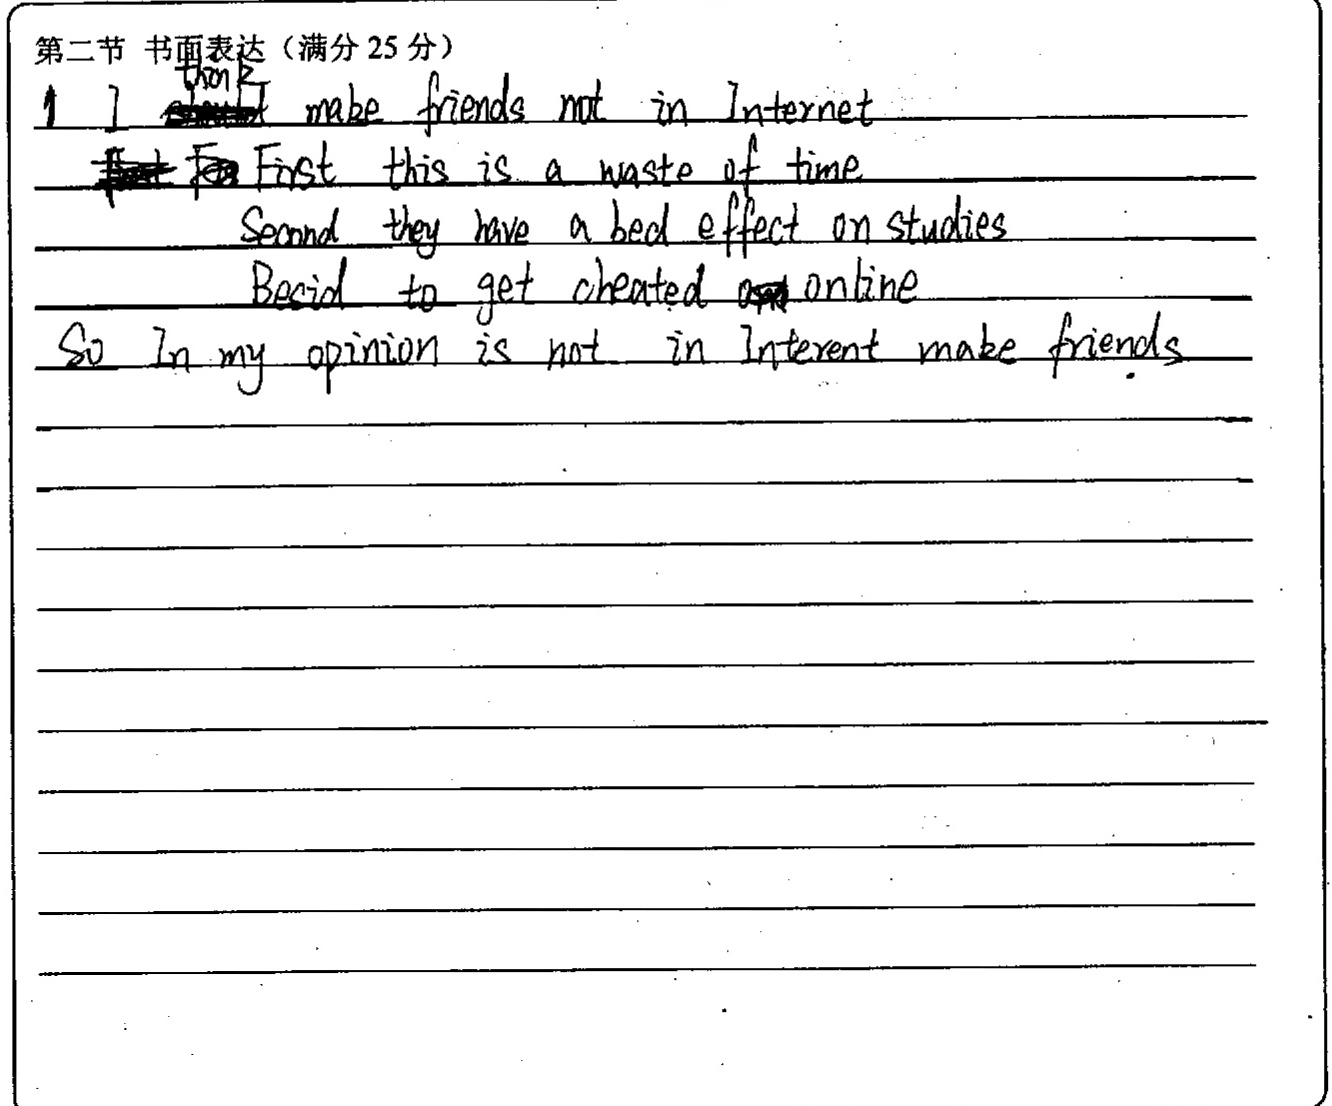 第二节 书面表达（满分 25 分）
think
1 I make friends not in Internet
First this is a waste of time
Second they have a bed effect on studies
Besid to get cheated online
So In my opinion is not in Interent make friends.